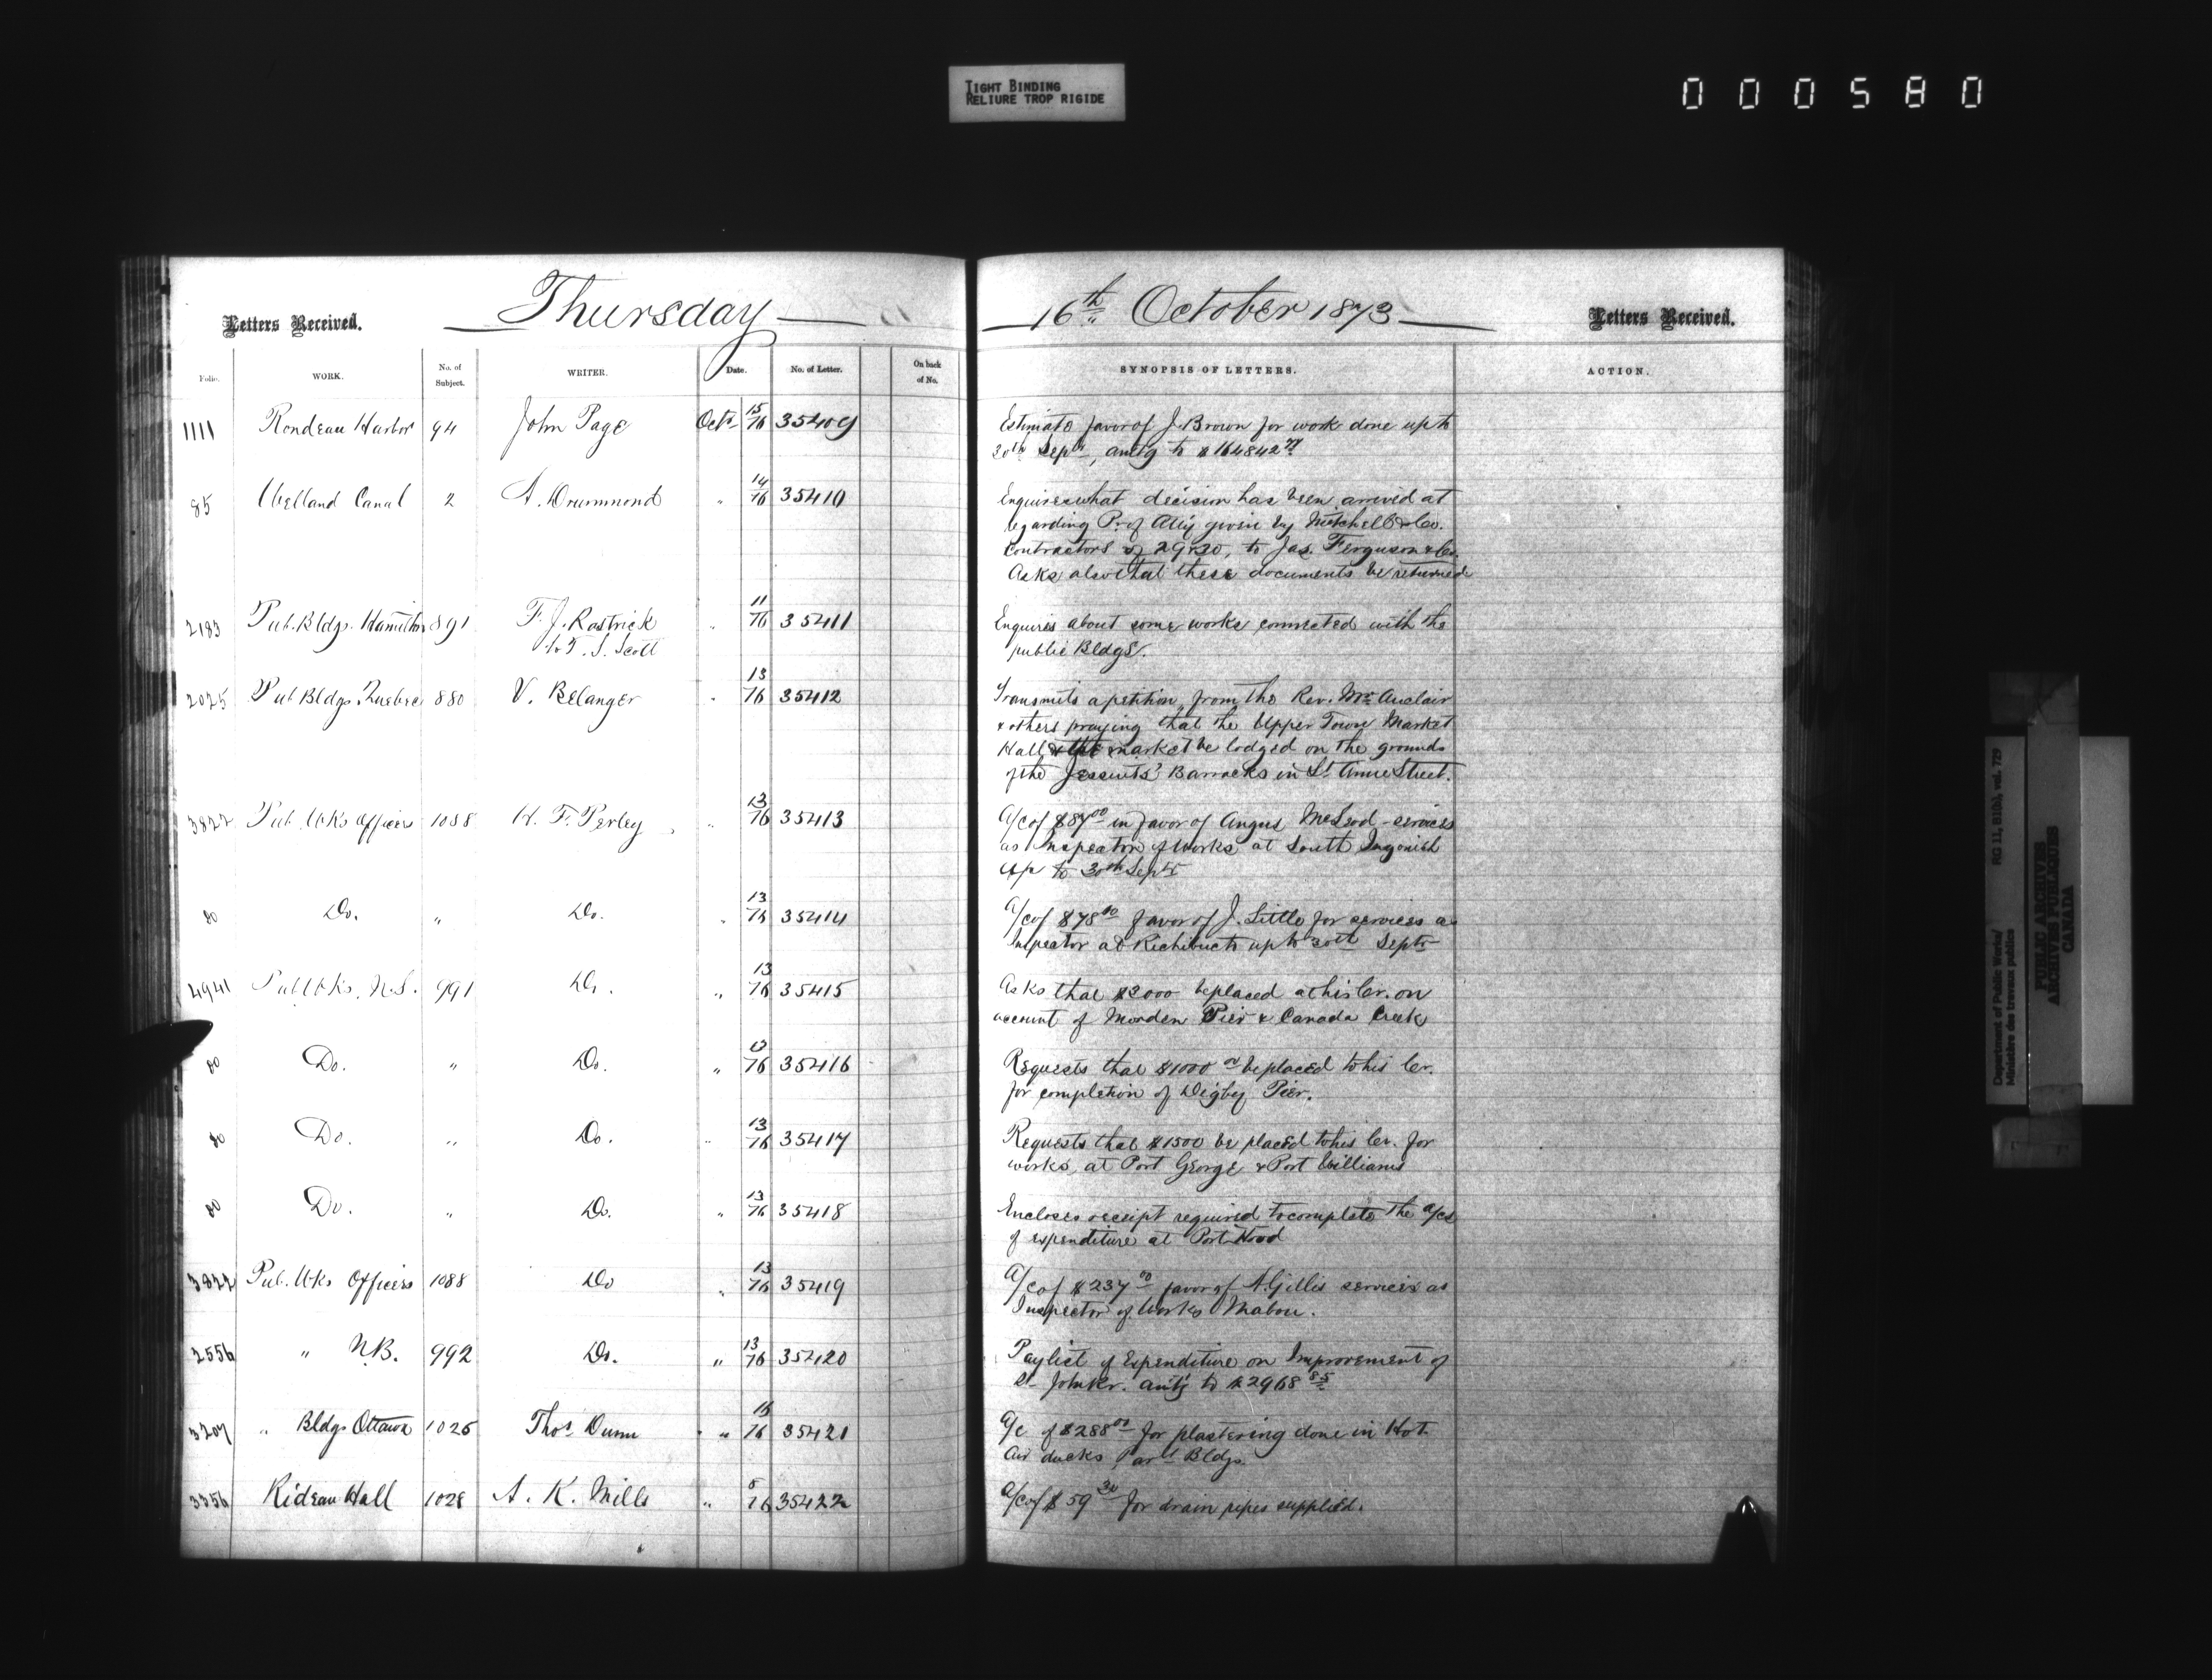 TIGHT BINDING
RELIURE TROP RIGIDE
000580
Letters Received.
Thursday
16th October 1873
Letters Received.
Folio. WORK. No. of Subject. WRITER. Date. No. of Letter. On back of No. SYNOPSIS OF LETTERS. ACTION.
1111 Rondeau Harbor 94 John Page Octr 15/16 35409 Estimate favor of J. Brown for work done up to
30th Septr, amtg to $
85 Welland Canal 2 A. Drummond " 14/16 35410 Enquires what decision has been arrived at
regarding P. of Atty given by Mitchell & Co.
Contractors of 29 & 30, to Jas. Ferguson & Co.
Asks also that these documents be returned
2183 Pub. Bldgs. Hamilton 891 F. J. Rastrick " 11/16 35411 Enquires about some works connected with the
to T. S. Scott public Bldgs.
2025 Pub Bldgs. Quebec 880 V. Belanger " 13/16 35412 Transmits a petition, from the Rev. Mr. Auclair
& others praying that the Upper Town Market
Hall & the market be lodged on the grounds
of the Jesuits' Barracks in St. Anne Street.
3822 Pub. Wks Officers 1088 H. F. Perley " 13/16 35413 a/c of $87.00 in favor of Angus McLeod - services
as Inspector of Works at South Ingonish
up to 30th Septr
do Do. " Do. " 13/16 35414 a/c of $78.00 favor of J. Little for services as
Inspector at Richibucto up to 30th Septr
4941 Pub Wks. N.S. 991 Do. " 13/16 35415 Asks that $3000 be placed at his Cr. on
account of Morden Pier & Canada Creek
do Do. " Do. " 13/16 35416 Requests that $1000 00 be placed to his Cr.
for completion of Digby Pier.
do Do. " Do. " 13/16 35417 Requests that $1500 be placed to his Cr. for
works, at Port George & Port Williams
do Do. " Do. " 13/16 35418 Encloses receipt required to complete the a/cs
of expenditure at Port Hood
3822 Pub. Wks Officers 1088 Do " 13/16 35419 a/c of $237 00 favor of A. Gillis services as
Inspector of Works Mabou.
2556 " N.B. 992 Do. " 13/16 35420 Paylist of Expenditure on Improvement of
St. John Rr. amtg to $2968 85
3207 " Bldgs Ottawa 1026 Thos Dunn " 16/16 35421 a/c of $288 00 for plastering done in Hot
Air ducks Parlt Bldgs.
3356 Rideau Hall 1028 A. K. Mills " 8/16 35422 a/c of $59 30 for drain pipes supplied.
Department of Public Works/
Ministère des travaux publics
RG 11, B1(b), vol. 729
PUBLIC ARCHIVES
ARCHIVES PUBLIQUES
CANADA